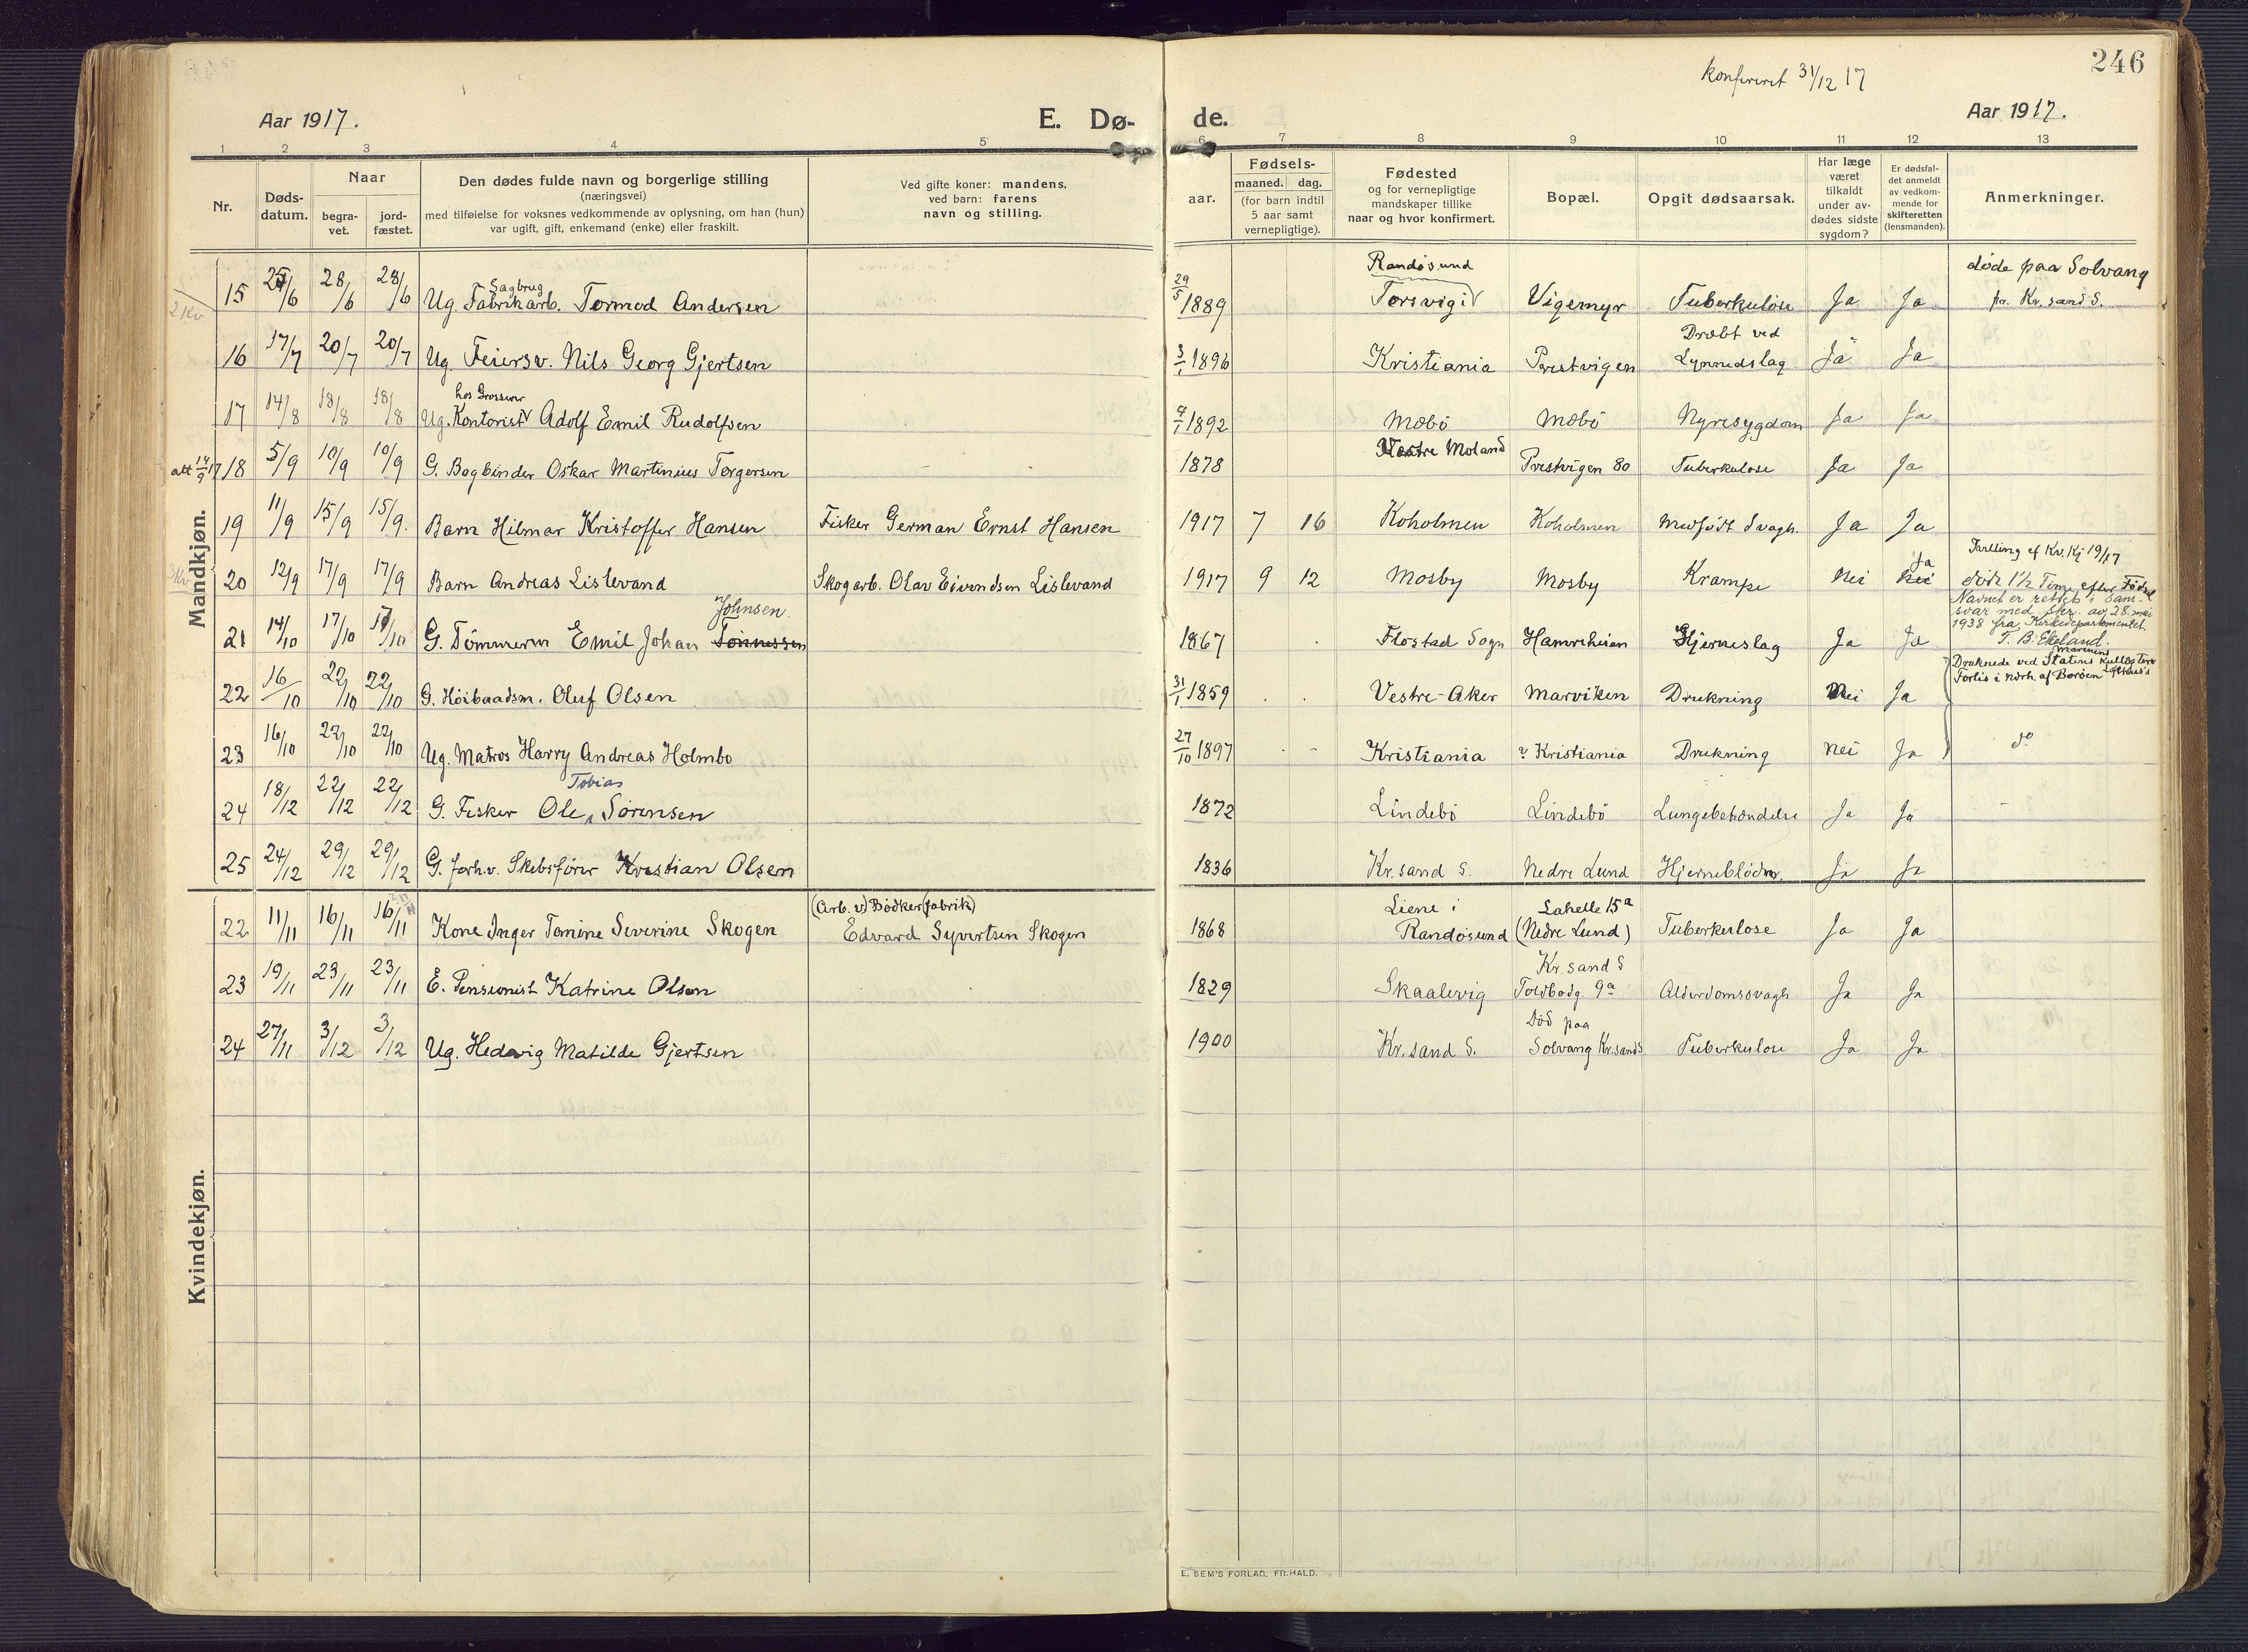 246
konfereret 31/12 17
Aar 1917. E. Dø- de. Aar 1917.
1 2 3 4 5 6 7 8 9 10 11 12 13
Nr.
Døds-
datum.
Naar
begra-
vet.
jord-
fæstet.
Den dødes fulde navn og borgerlige stilling
(næringsvei)
med tilføielse for voksnes vedkommende av oplysning, om han (hun)
var ugift, gift, enkemand (enke) eller fraskilt.
Ved gifte koner: mandens,
ved barn: farens
navn og stilling.
aar.
Fødsels-
maaned. dag.
(for barn indtil
5 aar samt
vernepligtige).
Fødested
og for vernepligtige
mandskaper tillike
naar og hvor konfirmert.
Bopæl.
Opgit dødsaarsak.
Har læge
været
tilkaldt
under av-
dødes sidste
sygdom?
Er dødsfal-
det anmeldt
av vedkom-
mende for
skifteretten
(lensmanden).
Anmerkninger.
Mandkjøn.
Sagbrug Randøsund døde paa Solvang
15 25/6 28/6 28/6 Ug. Fabrikarb. Tormod Andersen 29/5 1889 Torsvig i Vigemyr Tuberkulose Ja Ja pr. Kr.sand S.
2 Kv
Dræbt ved
16 17/7 20/7 20/7 Ug. Feiersv. Nils Georg Gjertsen 3/1 1896 Kristiania Prestvigen Lynnedslag Ja Ja
hos Grosserer
17 14/8 18/8 18/8 Ug. Kontorist Adolf Emil Rudolfsen 4/1 1892 Mæbø Mæbø Nyresygdom Ja Ja
att 14/9 17 18 5/9 10/9 10/9 G. Bogbinder Oskar Martinius Torgersen 1878 Vestre Moland Prestvigen 80 Tuberkulose Ja Ja
19 11/9 15/9 15/9. Barn Hilmar Kristoffer Hansen Fisker German Ernst Hansen 1917 7 16 Koholmen Koholmen Medfødt Svagh. Ja Ja
Tvilling af Kv. Kj 19/17
Ja
20 12/9 17/9 17/9 Barn Andreas Lislevand Skogarb. Olav Eivendsen Lislevand 1917 9 12 Mosby Mosby Krampe Nei Nei døde 1½ Time efter Fødsel
Johnsen
Navnet er rettet i Sam-
svar med skr. av 28. mai
1938 fra Kirkedepartementet.
T. B. Ekeland.
21 14/10 17/10 17/10 G. Tømmerm Emil Johan Tønnessen 1867 Flostad Sogn Hamreheien Hjerneslag Ja Ja
Marinens
Druknede ved Statens
Forlis i nærh af Borøen
22 16/10 22/10 22/10 G. Høibaadsm. Oluf Olsen 31/1 1859 Vestre-Aker Marviken Drukning Nei Ja
23 16/10 22/10 22/10 Ug. Matros Harry Andreas Holmbo 27/10 1897 Kristiania ? Kristiania Drukning Nei Ja do
Tobias
24 18/12 22/12 22/12 G. Fisker Ole Sørensen 1872 Lindebø Lindebø Lungebetændelse Ja Ja
25 24/12 29/12 29/12 G. forh.v. Skibsfører Kristian Olsen 1836 Kr.sand S. Nedre Lund Hjerneblødn. Ja Ja
Kvindekjøn.
(Arb. v) Bødker(fabrik) Liene i Lahelle 15a
22 11/11 16/11 16/11 Kone Inger Tomine Severine Skogen Edvard Syvertsen Skogen 1868 Randøsund (Nedre Lund) Tuberkulose Ja Ja
Kr.sand S
23 19/11 23/11 23/11 E. Pensionist Katrine Olsen 1829 Skaalevig Toldbodg. 9a Alderdomssvagh. Ja Ja
Død paa
24 27/11 3/12 3/12 Ug. Hedevig Matilde Gjertsen 1900 Kr.sand S. Solvang Kr.sand S Tuberkulose Ja Ja
E. SEM'S FORLAG, FR.HALD.